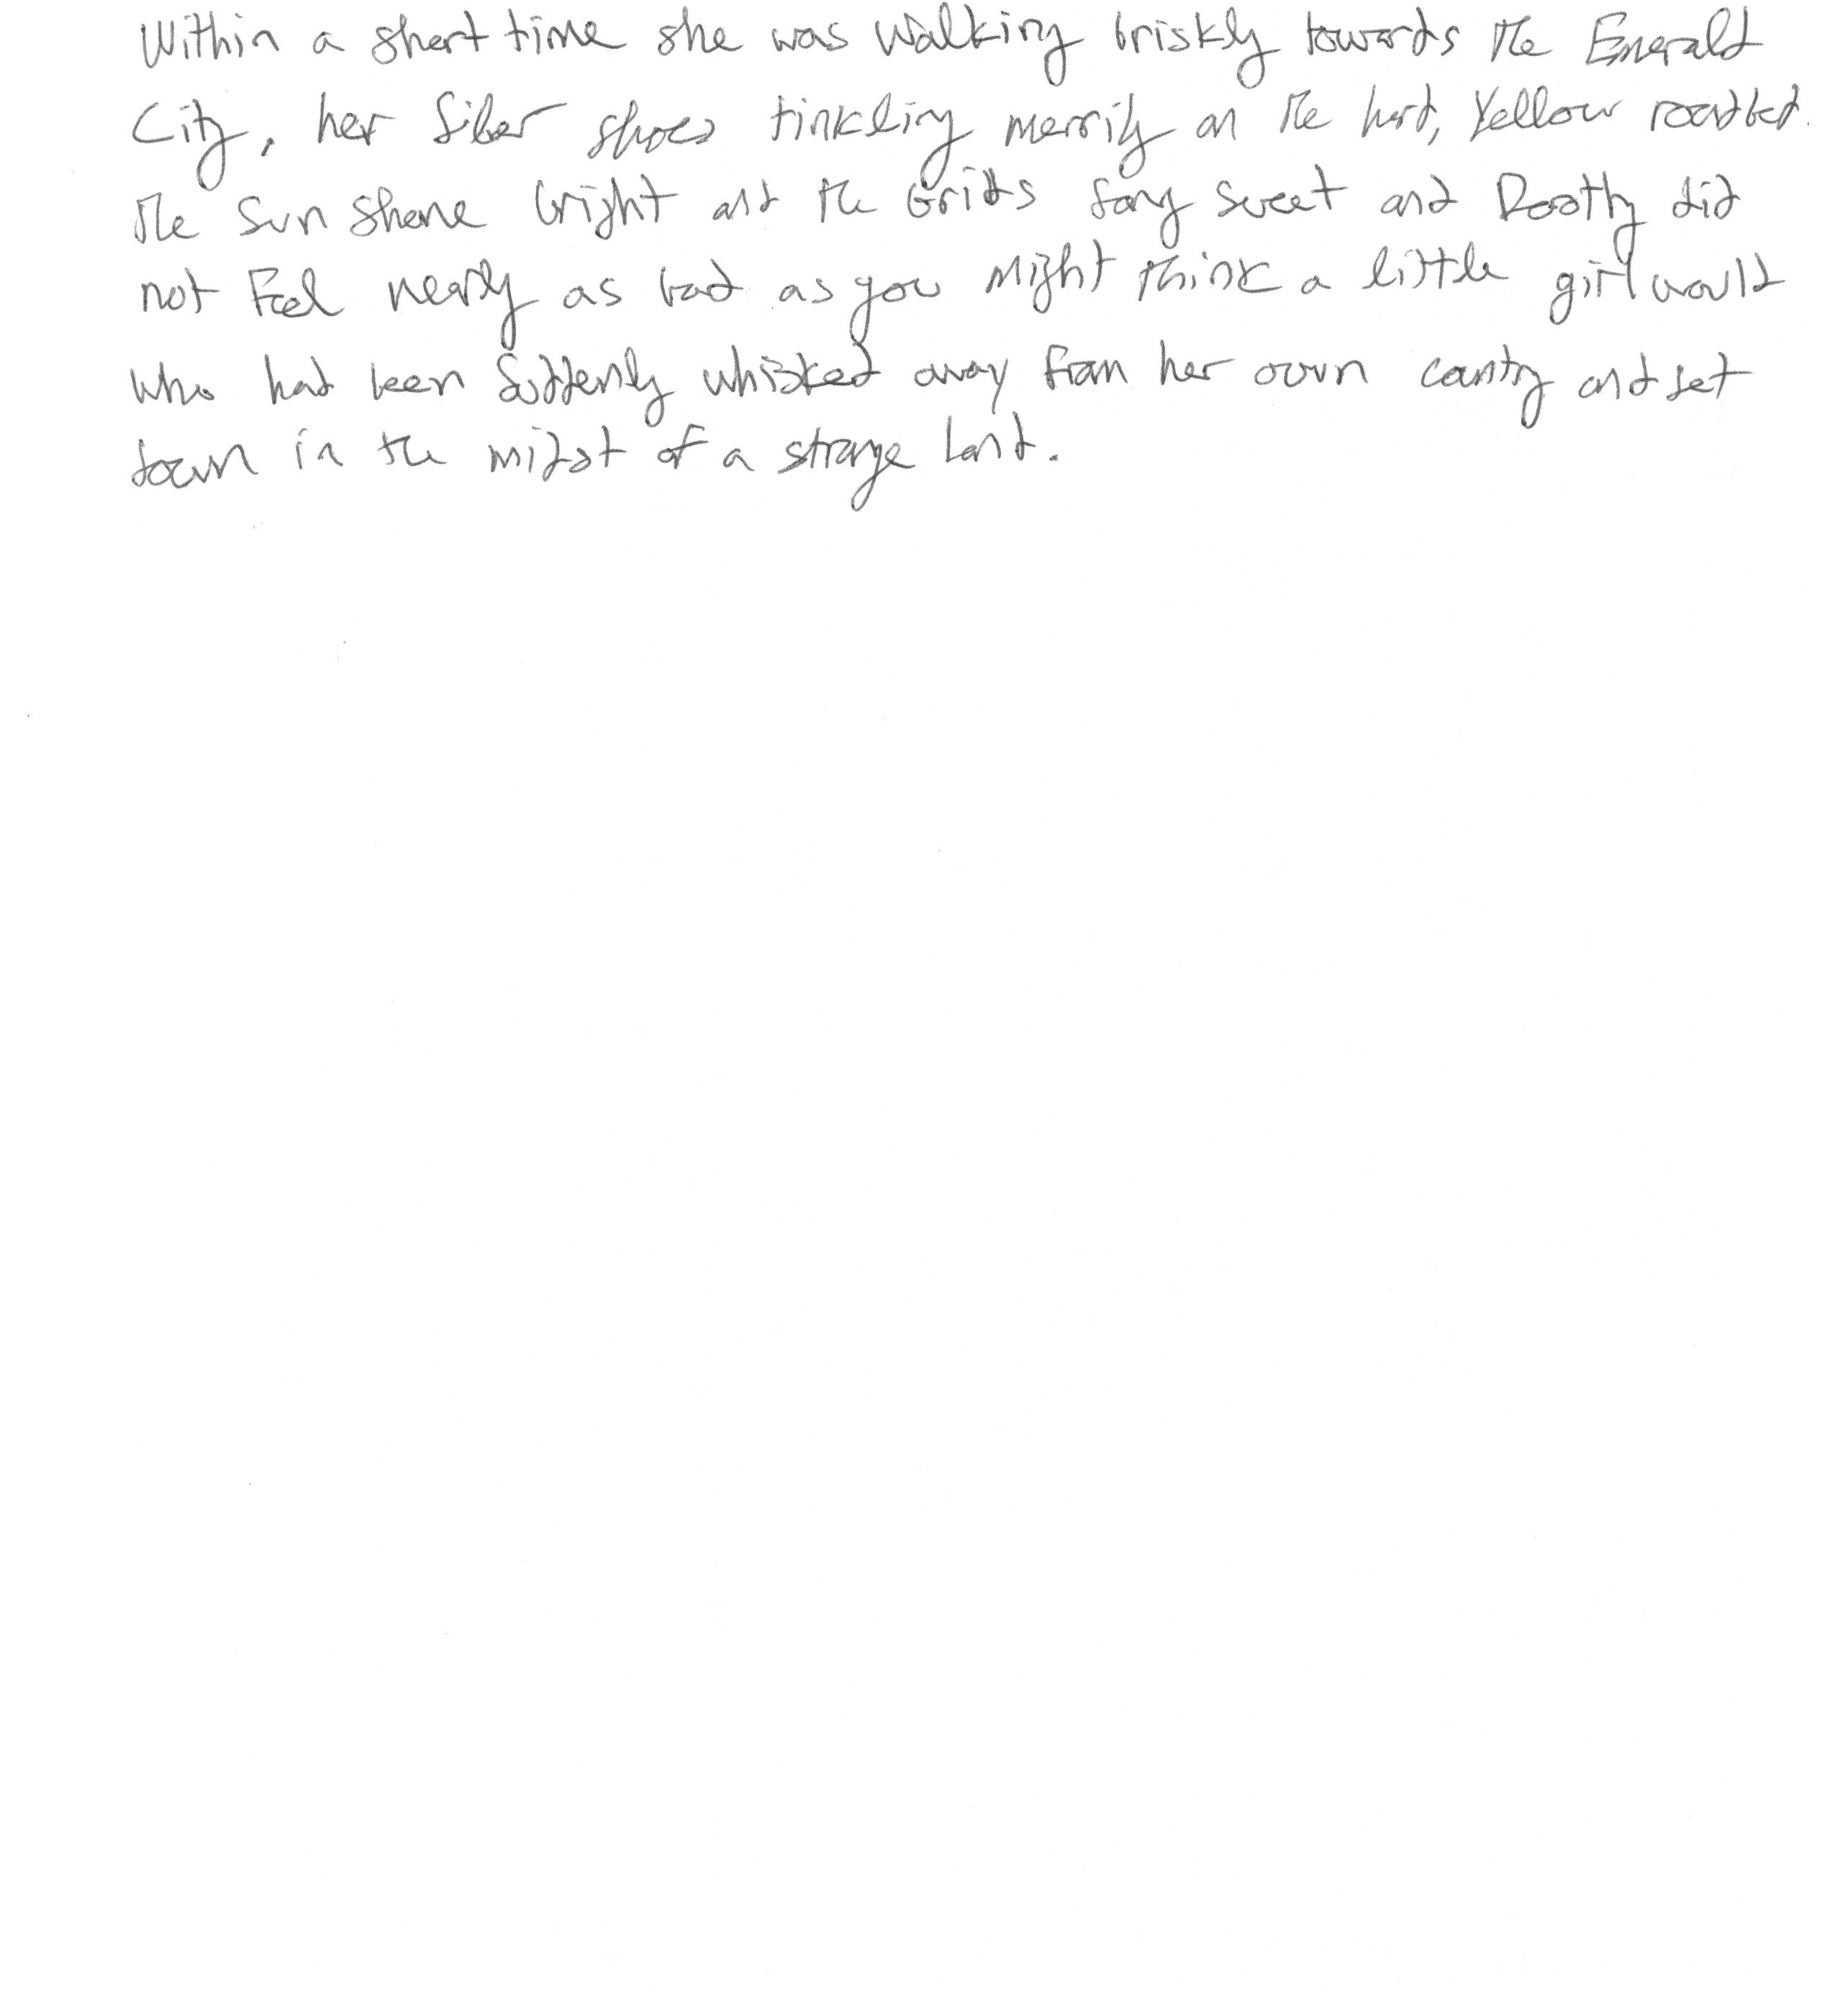 Within a short time she was walking briskly towards the Emerald
City, her silver shoes tinkling merrily on the hard, yellow roadbed.
The sun shone bright and the birds sang sweet and Dorothy did
not feel nearly as bad as you might think a little girl would
who had been suddenly whisked away from her own country and set
down in the midst of a strange land.